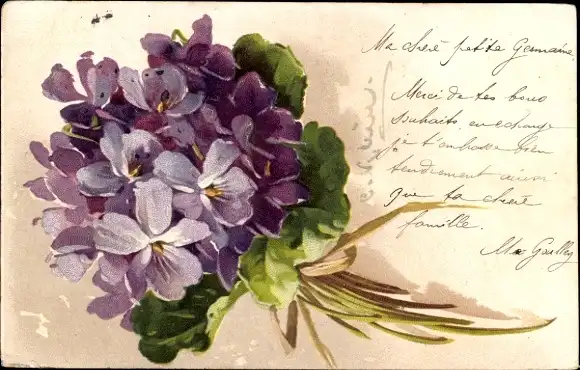 Ma chère petite Germaine
Merci de tes bons
souhaits en échange
je t'embrasse bien
tendrement ainsi
que ta chère
famille.